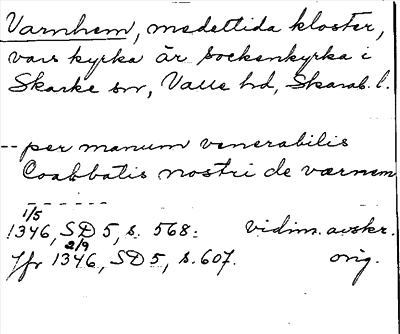 Varnhem, medeltida kloster,
vars kyrka är sockenkyrka i
Skarke sn, Valle hd, Skarab. l.
-- per manum venerabilis
Coabbatis nostri deværnem
- - - - - -
1/5
1346, SD 5, s. 568: vidim. avskr.
2/9
Jfr 1346, SD 5, s. 607. orig.